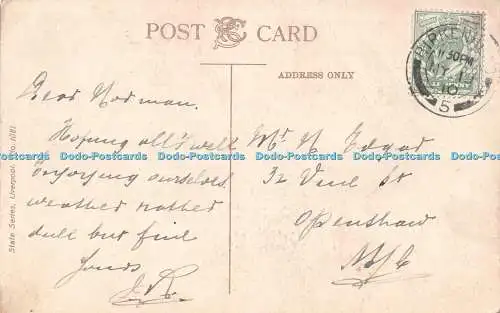 POST CARD
ADDRESS ONLY
BIRKENH
11.30PM
10
5
Dear Norman,
Hoping all's well
Enjoying ourselves
weather rather
dull but fine
Yours
Mr N Edgar
32 St
Openshaw
M/C
State Series, Liverpool.
Dodo-Postcards Dodo-Postcards Dodo-Postcards Dodo-Postcards Dodo-Postcards